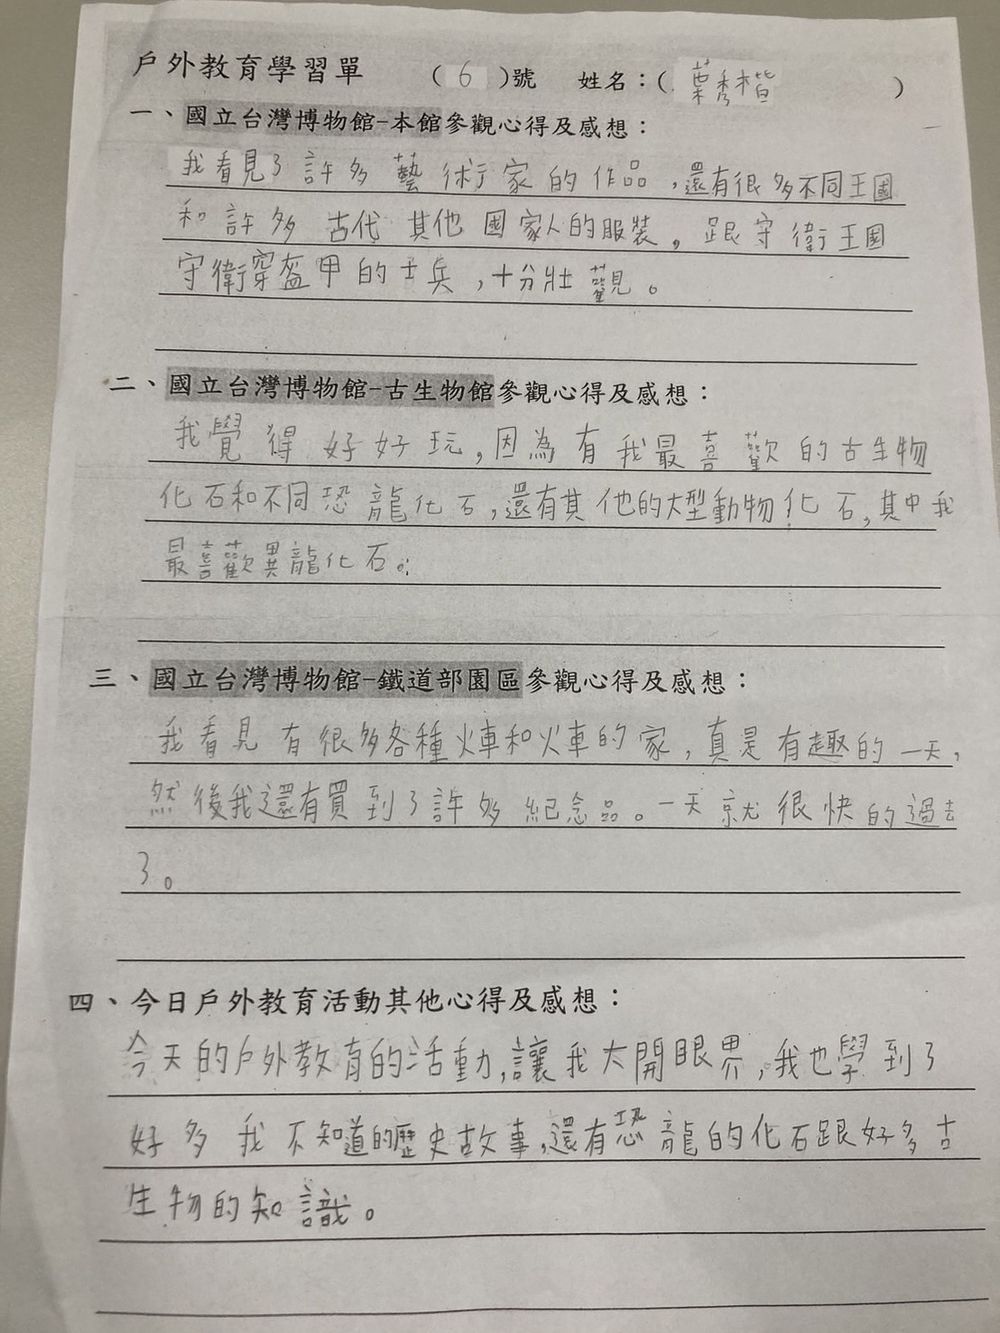 戶外教育學習單 (6)號 姓名：(葉秀楷)
一、國立台灣博物館-本館參觀心得及感想：
我看見了許多藝術家的作品，還有很多不同王國
和許多古代其他國家人的服裝，跟守衛王國
守衛穿盔甲的士兵，十分壯觀。
二、國立台灣博物館-古生物館參觀心得及感想：
我覺得好好玩，因為有我最喜歡的古生物
化石和不同恐龍化石，還有其他的大型動物化石，其中我
最喜歡異龍化石。
三、國立台灣博物館-鐵道部園區參觀心得及感想：
我看見有很多各種火車和火車的家，真是有趣的一天，
然後我還有買到了許多紀念品。一天就很快的過去
了。
四、今日戶外教育活動其他心得及感想：
今天的戶外教育的活動，讓我大開眼界，我也學到了
好多我不知道的歷史故事，還有恐龍的化石跟好多古
生物的知識。